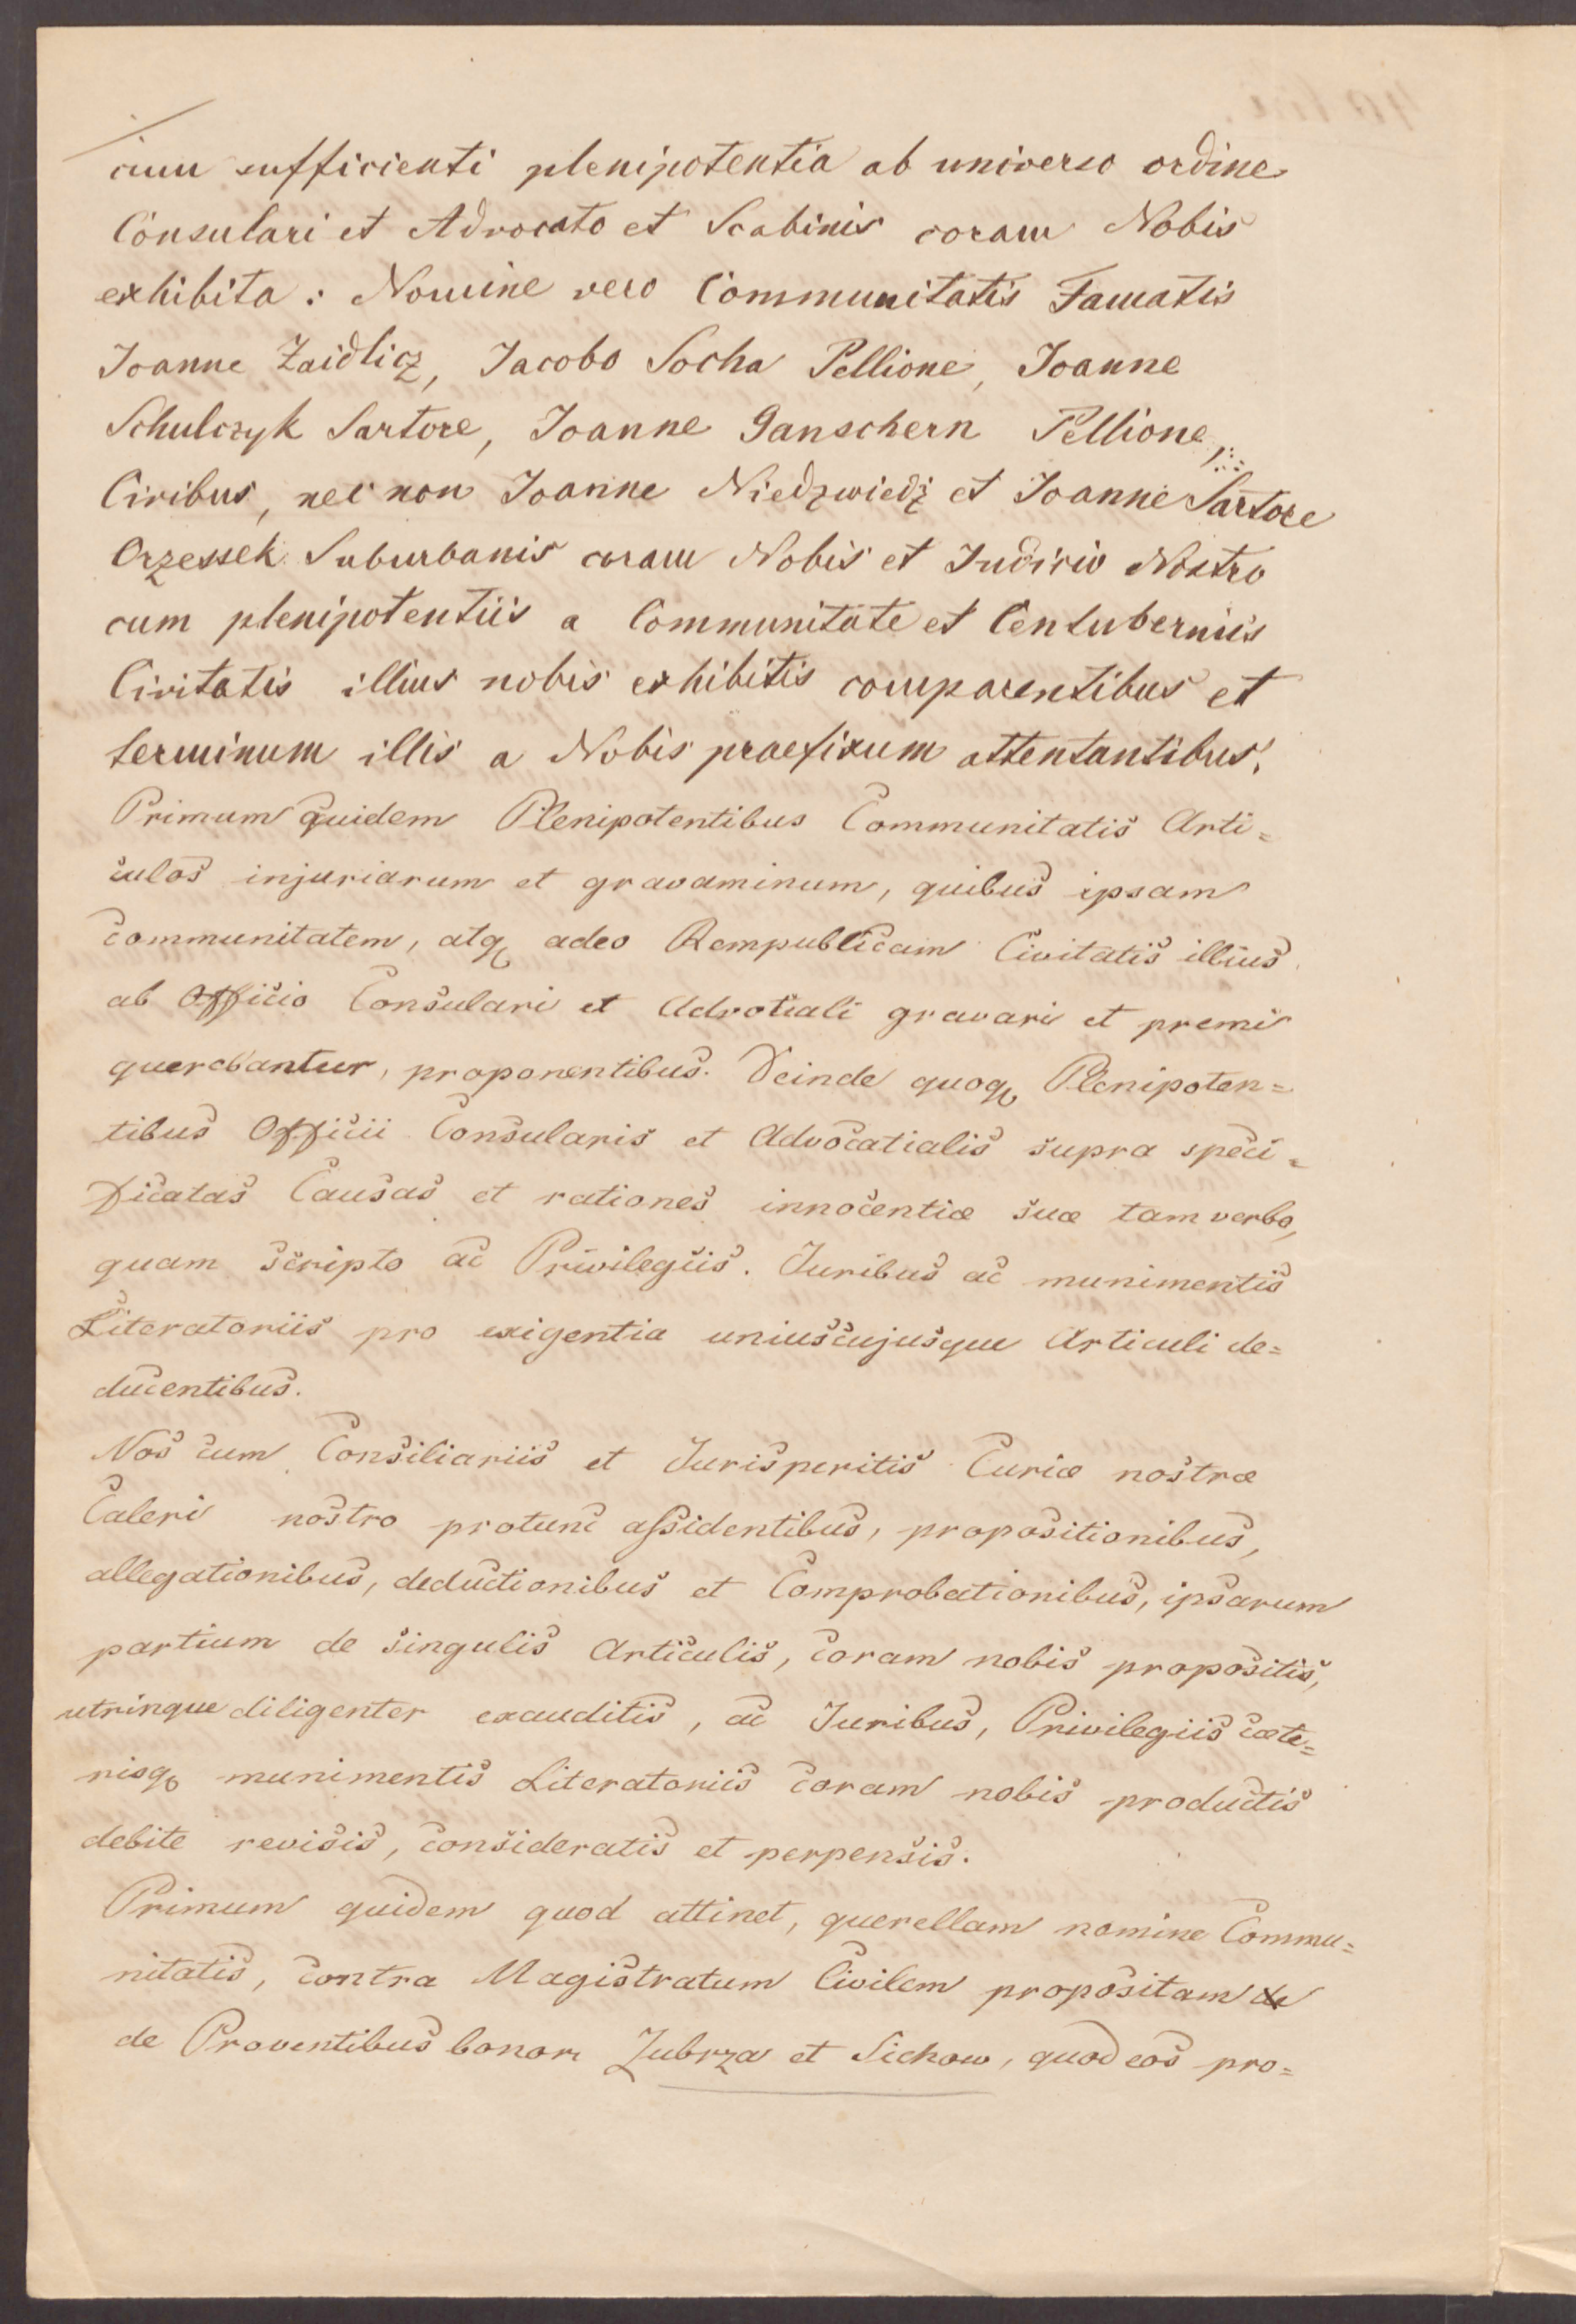 cum sufficienti plenipotentia ab universo ordine
Consulari et Advocato et Scabinis coram Nobis
exhibita: Nomine vero Communitatis Famatis
Joanne Zaidlicz, Jacobo Socha Pellione, Joanne
Schulczyk Sartore, Joanne Ganschern Pellione,
Civibus, nec non Joanne Niedzwiedz et Joanne Sartore
Orzessek Suburbanis coram Nobis et Judicio Nostro
cum plenipotentiis a Communitate et Contuberniis
Civitatis illius nobis exhibitis comparentibus et
terminum illis a Nobis praefixum attentantibus,
Primum quidem Plenipotentibus Communitatis Arti=
culos injuriarum et gravaminum, quibus ipsam
communitatem, atq adeo Rempublicam Civitatis illius
ab Officio Consulari et Advotiali gravari et premi
querebantur, proponentibus. Deinde quoq Plenipoten=
tibus Officii Consularis et Advocatialis supra speci=
ficatas Causas et rationes innocentiæ suæ tam verbo,
quam scripto ac Privilegiis. Juribus ac munimentis
Literatoriis pro exigentia uniuscujusque Articuli de=
ducentibus.
Nos cum Consiliariis et Jurisperitis Curiæ nostræ
Caleri nostro protunc assidentibus, propositionibus,
allegationibus, deductionibus et Comprobationibus, ipsarum
partium de singulis Articulis, coram nobis propositis,
utrinque diligenter exauditis, ac Juribus, Privilegiis cæte=
risq munimentis Literatoriis coram nobis productis
debite revisis, consideratis et perpensis.
Primum quidem quod attinet, querellam nomine Commu=
nitatis, contra Magistratum Civilem propositam de
de Proventibus bonor Zubrza et Sichow, quod eos pro=